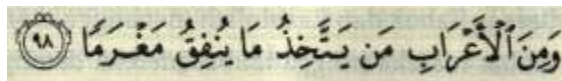 وَمِنَ ٱلْأَعْرَابِ مَن يَتَّخِذُ مَا يُنفِقُ مَغْرَمًا ٩٨